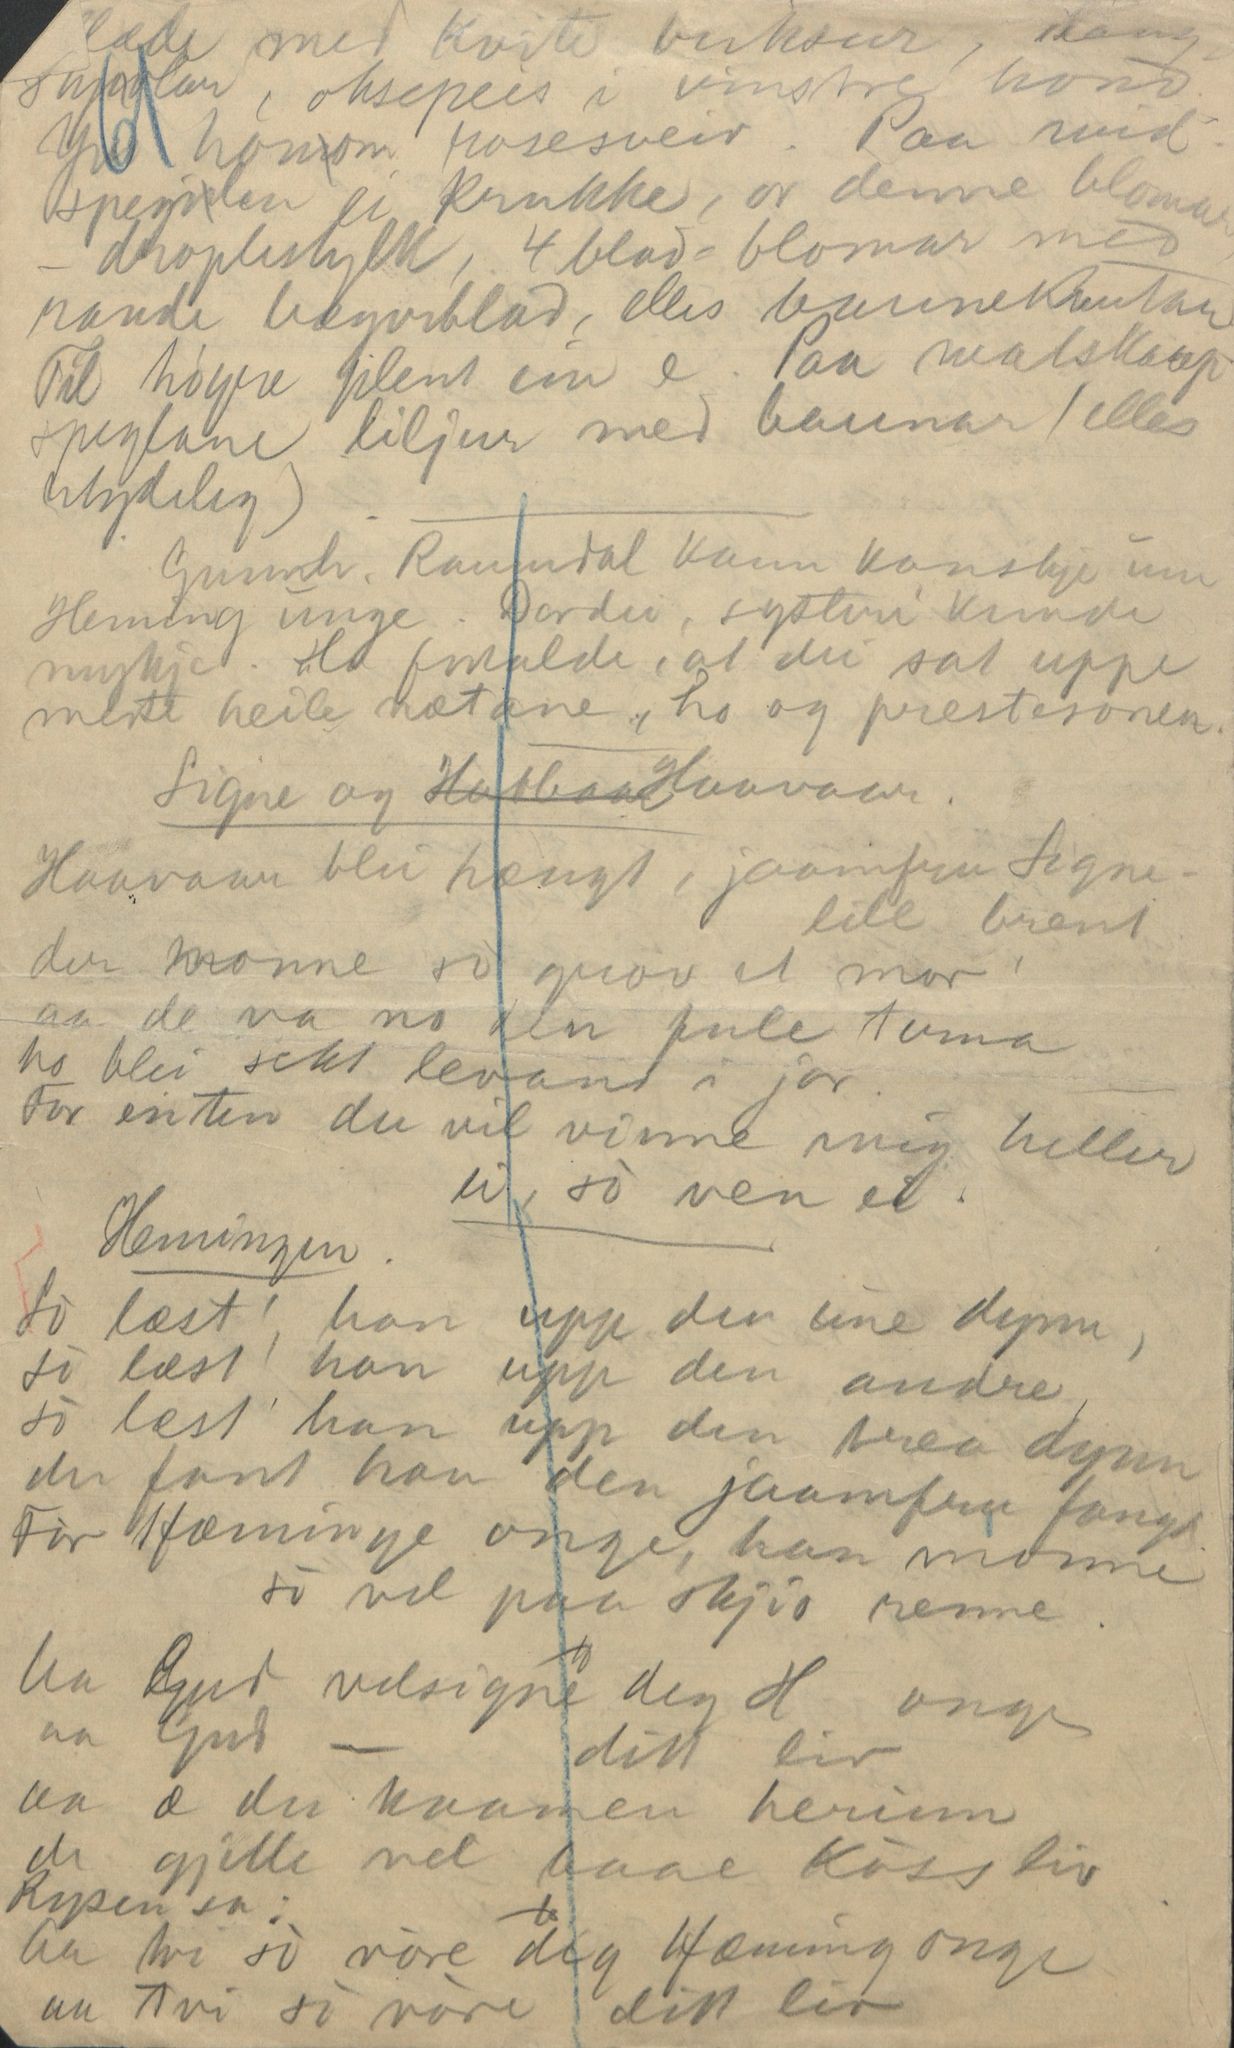 læde med kvite buksur, stang
supolar, oksepeis i vinstre hond.
Yvi honom rosesveiv. Paa mid-
spegilen ei krukke, or denne blomar
- droplestylk, 4 blad-blomar med
raude bægerblad, elles baunekrutar
Til høgre gilent ein e. Paa matskaap-
speglane liljur med baunar (elles
utydeleg)
Gunnh. Raundal kann kanskje um
Heming unge. Dordei, systeri kunde
mykje. Ho fortalde, at dei sat uppe
meste heile nætane, ho og prestesonen.
Signe og Haavaar.
Haavaar blei hængt, jaamfru Signe-
lill brent
der monne så grov et mor'
aa de va no den fule terna
ho blei sett levand i jor.
For enten du vil vinne mig heller
ei, så ven ei.
Hemingen.
Så læst' han upp den eine dynn,
så læst' han upp den andre,
så læst' han upp den trea dynn
der fant han den jaamfru fangi
For Hæminge onge, han monne
så vel paa skjio renne.
Aa Gud velsigne deg H onge
aa Gud — ditt liv
aa æ du kaamen herinn
de gjelle vel baae kåss liv
Rysen sa:
Aa tvi så våre deg Hæming onge
aa tvi så våre ditt liv